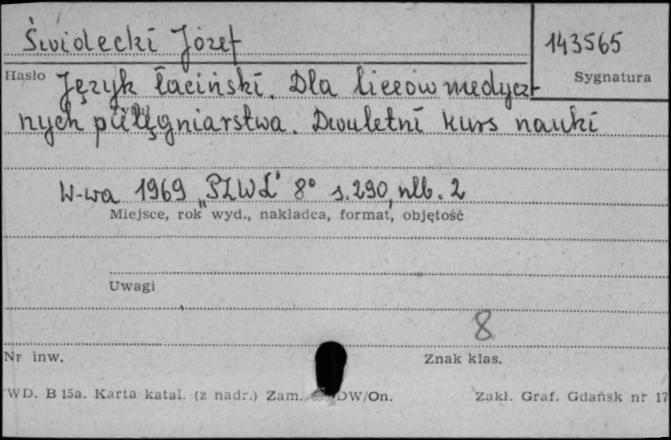 Świdecki Józef
143565
Hasło
Sygnatura
Język łaciński. Dla liceów medycz-
nych pielęgniarstwa. Dwuletni kurs nauki
W-wa 1969 „PZWL" 8° s. 290, nlb. 2
Miejsce, rok wyd., nakładca, format, objętość
Uwagi
8
Nr inw.
Znak klas.
WD. B 15a. Karta katal. (z nadr.) Zam. DW/On.
Zakł. Graf. Gdańsk nr 17